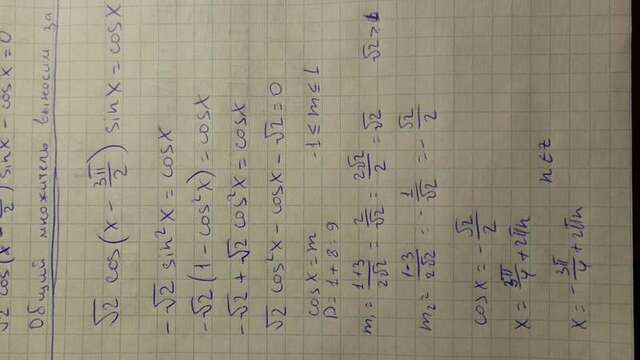 √2 cos(x - /2) sinx - cosx = 0
Общий множитель выносим за
√2 cos(x - 3π/2) sinx = cosx
-√2 sin²x = cosx
-√2(1 - cos²x) = cosx
-√2 + √2 cos²x = cosx
√2 cos²x - cosx - √2 = 0
cosx = m -1 ≤ m ≤ 1
D = 1 + 8 = 9
m₁ = (1+3)/(2√2) = 2/√2 = 2√2/2 = √2
m₂ = (1-3)/(2√2) = -1/√2 = -√2/2
cosx = -√2/2
x = 3π/4 + 2πn
x = -3π/4 + 2πn n∈z